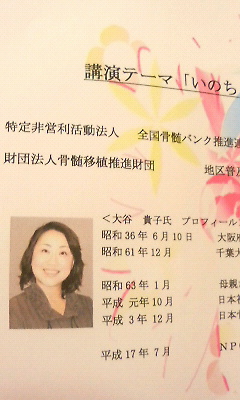 講演テーマ「いのち
特定非営利活動法人　全国骨髄バンク推進連
財団法人骨髄移植推進財団　地区普及
＜大谷　貴子氏　プロフィール
昭和３６年　６月１０日　大阪府
昭和６１年１２月　千葉大
昭和６３年　１月　母親
平成　元年１０月　日本
平成　３年１２月　日本
平成１７年　７月　ＮＰ